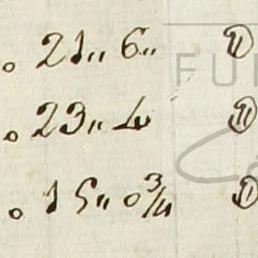 o 21„ 6„
o 23„ 4
o 15„ 0 3/4
FU